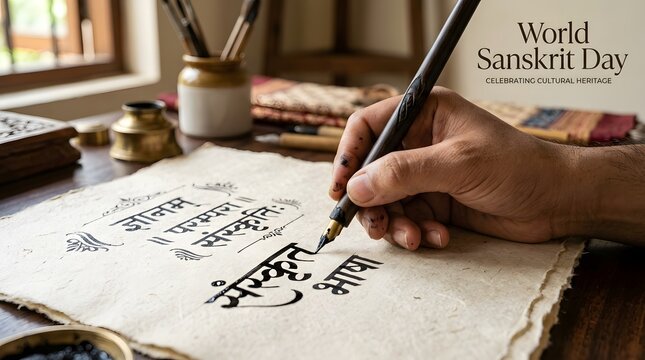 World
Sanskrit Day
CELEBRATING CULTURAL HERITAGE
ज्ञानम्
॥ परम्परा ॥
संस्कृतिः
संस्कृत
भाषा